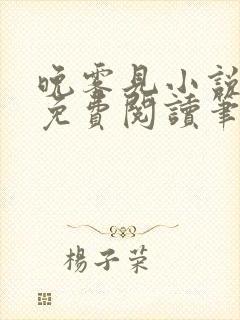 晚零見小說
免費閱讀筆
楊子荣